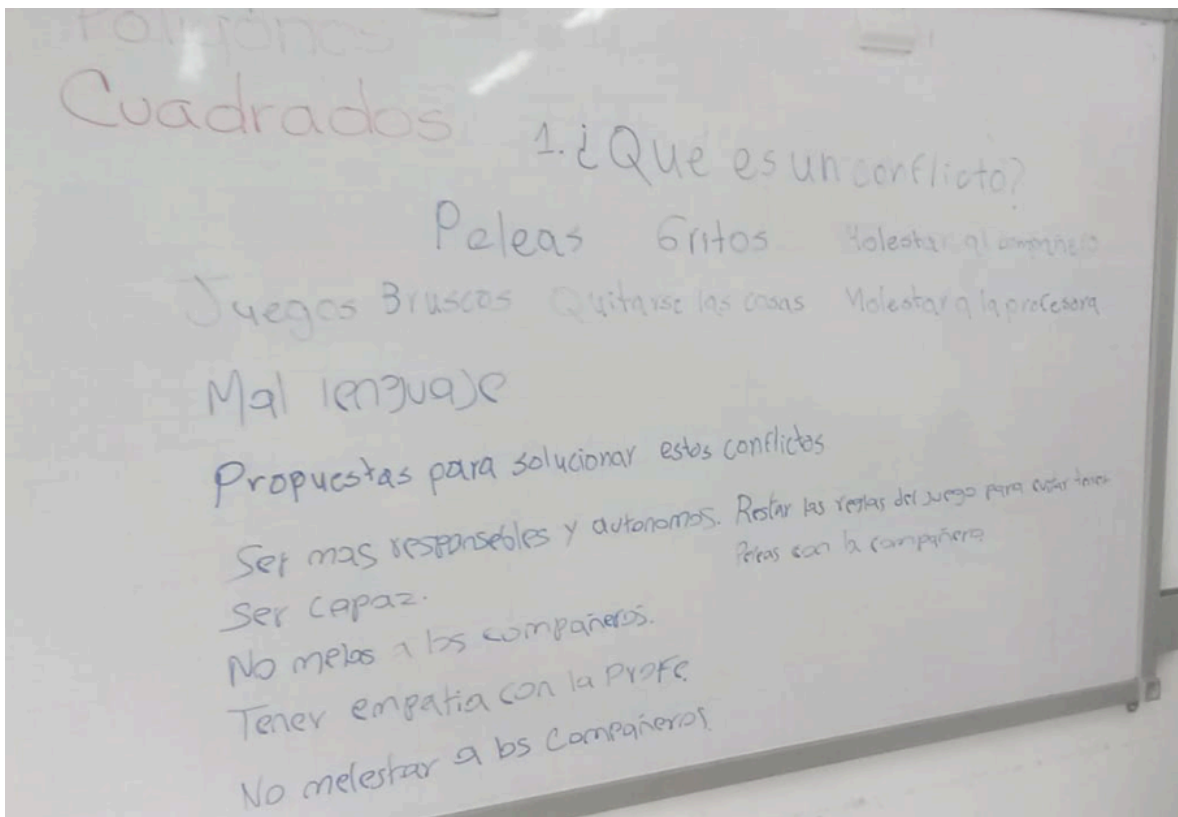 Poligonos
Cuadrados
1. ¿Que es un conflicto?
Peleas Gritos Molestar al compañero
Juegos Bruscos Quitarse las cosas Molestar a la profesora
Mal lenguaje
Propuestas para solucionar estos conflictos
Ser mas responsebles y autonomos. Restar las reglas del juego para evitar tener
Peleas con la compañera
Ser capaz.
No melos a los compañeros.
Tener empatia con la Profe
No melestar a los compañeros